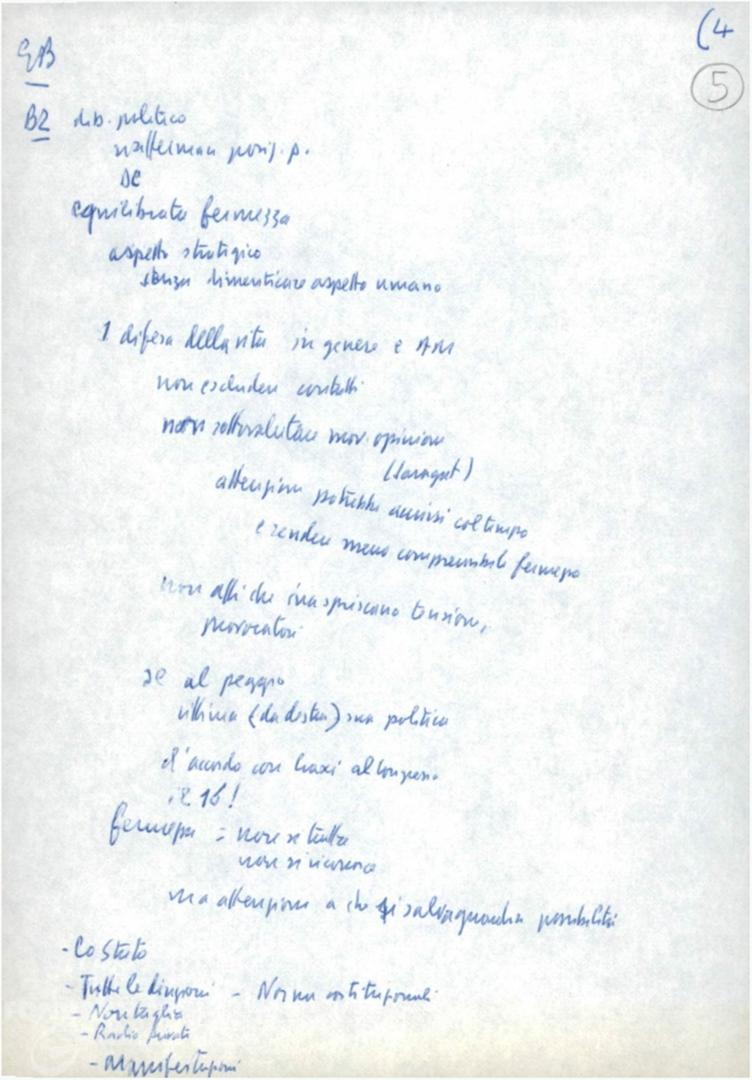 (4
5
GB
B2 dib. politico
riaffermare posiz. p.
DC
equilibrata fermezza
aspetto strategico
senza dimenticare aspetto umano
1 difesa della vita in genere e AM
non escludere contatti
non sottovalutare mov. opinione
attenzione potrebbe acuirsi col tempo
e rendere meno comprensibile fermezza
non atti che inaspriscano tensione,
provocatori
se al peggio
vittima (da destra) sua politica
d'accordo con Craxi al Congresso
il 16!
fermezza = non si tratta
non si riconosce
ma attenzione a che si salvaguardi possibilità
- Lo Stato
- Tutte le direzioni - Norme costituzionali
- Non taglia
- Radio private
- Manifestazioni